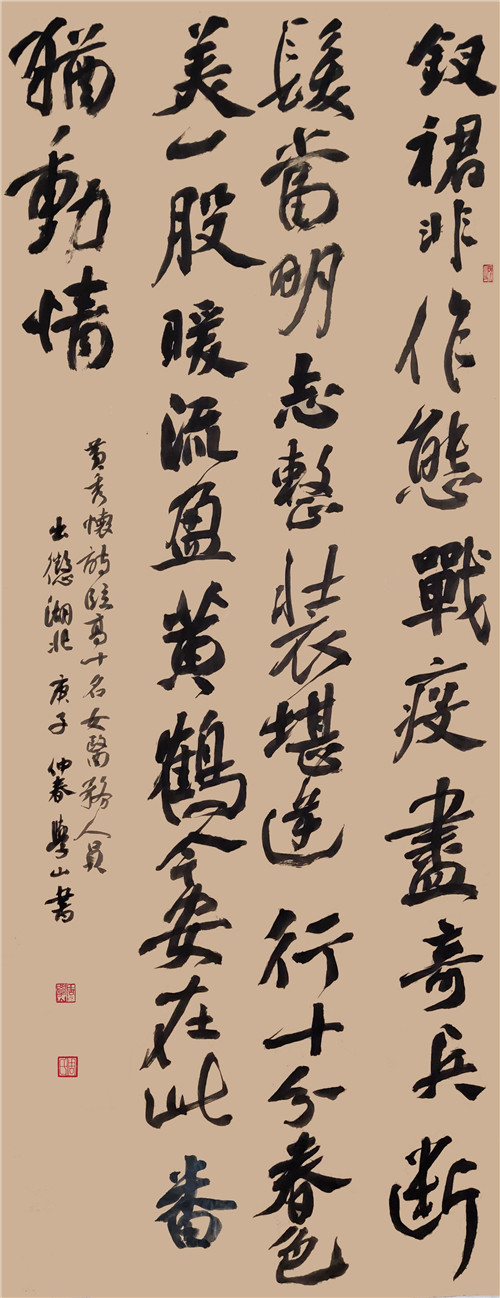 釵裙非作態戰疫盡奇兵斷
髮當明志整裝堪逆行十分春色
美一股暖流盈黃鶴今安在此番
猶動情
黃秀懷詩臨高十名女醫務人員
出懲湖北 庚子仲春學山書